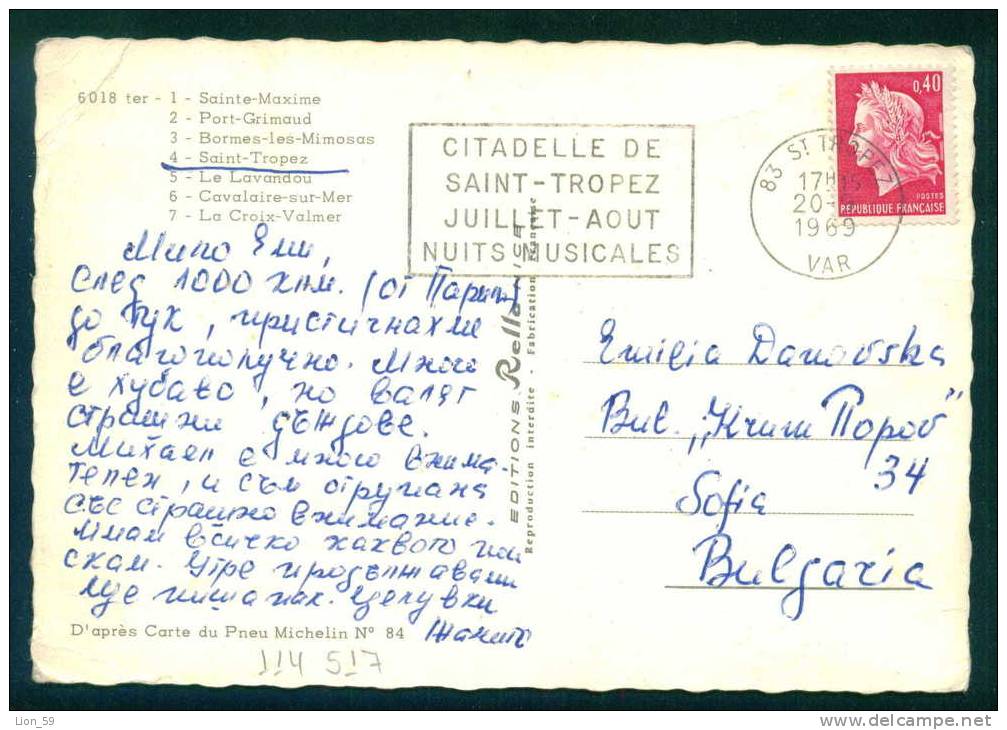 6018 ter - 1 - Sainte-Maxime
2 - Port-Grimaud
3 - Bormes-les-Mimosas
4 - Saint-Tropez
5 - Le Lavandou
6 - Cavalaire-sur-Mer
7 - La Croix-Valmer
CITADELLE DE
SAINT-TROPEZ
JUILLET-AOUT
NUITS MUSICALES
83 ST TROPEZ
17H15
20-
1969
VAR
0,40
POSTES
REPUBLIQUE FRANÇAISE
Мило Ели,
След 1000 клм. (от Париж)
до тук, пристигнахме
благополучно. Много
е хубаво, но валят
страшни дъждове.
Михаел е много внима-
телен, и съм отрупана
със страшно внимание.
Имам всичко каквото поис
скам. Утре продължаваме
Ще пиша пак. Целувки
D'après Carte du Pneu Michelin N° 84
114 517
EDITIONS Rella NICE
Reproduction interdite - Fabrication Française
Emilia Danovska
Bul. „Крум Попов"
34
Sofia
Bulgaria
Lion_59
www.delcampe.net